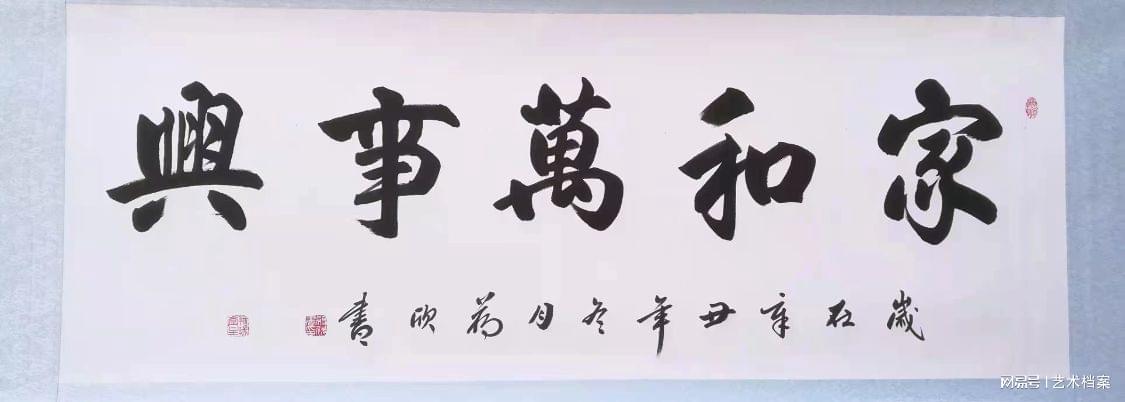 家和萬事興
歲在辛丑年冬月荷欣書
网易号 | 艺术档案